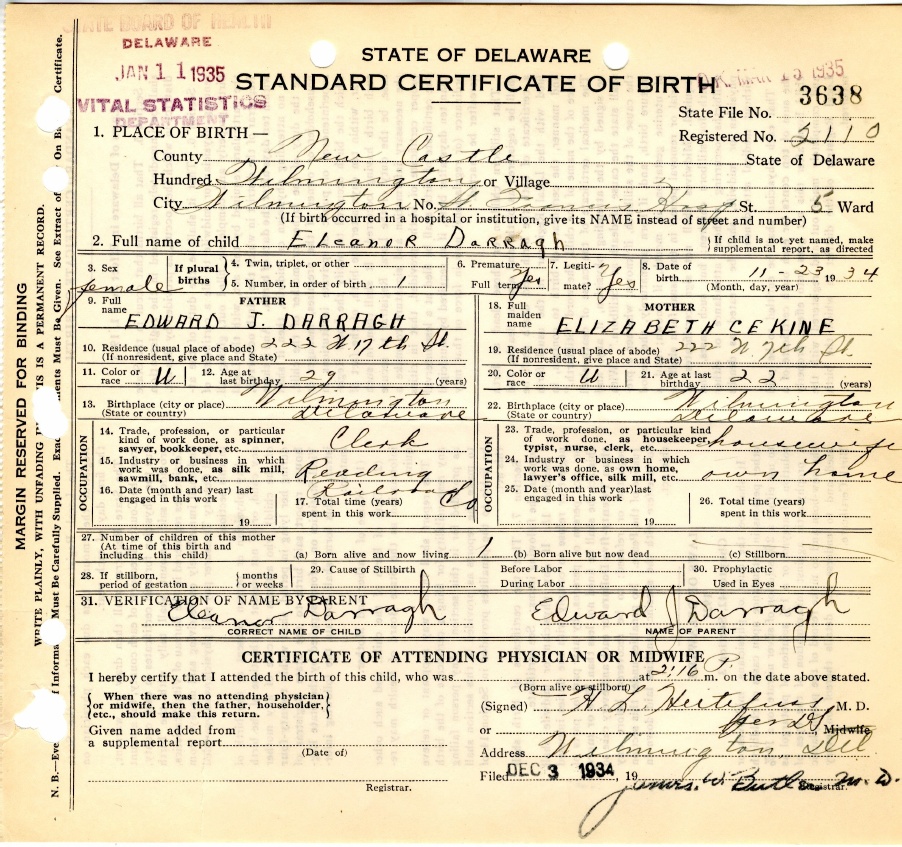 STATE BOARD OF HEALTH
DELAWARE
JAN 11 1935
VITAL STATISTICS
DEPARTMENT
STATE OF DELAWARE
STANDARD CERTIFICATE OF BIRTH
O.K. MAR 15 1935
State File No. 3638
Registered No. 2110
1. PLACE OF BIRTH—
County New Castle State of Delaware
Hundred Wilmington or Village
City Wilmington No. St Francis Hosp St. 5 Ward
(If birth occurred in a hospital or institution, give its NAME instead of street and number)
2. Full name of child ELEANOR DARRAGH { If child is not yet named, make supplemental report, as directed
3. Sex female
If plural births { 4. Twin, triplet, or other
5. Number, in order of birth 1
6. Premature Full term Yes
7. Legitimate? Yes
8. Date of birth 11-23 1934
(Month, day, year)
FATHER
9. Full name EDWARD J. DARRAGH
10. Residence (usual place of abode) 222 W 17th St.
(If nonresident, give place and State)
11. Color or race W 12. Age at last birthday 29 (years)
13. Birthplace (city or place) Wilmington
(State or country) Delaware
OCCUPATION
14. Trade, profession, or particular kind of work done, as spinner, sawyer, bookkeeper, etc. Clerk
15. Industry or business in which work was done, as silk mill, sawmill, bank, etc. Reading Railroad Co
16. Date (month and year) last engaged in this work 19
17. Total time (years) spent in this work
MOTHER
18. Full maiden name ELIZABETH CEKINE
19. Residence (usual place of abode) 222 W. 7th St.
(If nonresident, give place and State)
20. Color or race W 21. Age at last birthday 22 (years)
22. Birthplace (city or place) Wilmington
(State or country) Delaware
OCCUPATION
23. Trade, profession, or particular kind of work done, as housekeeper, typist, nurse, clerk, etc. housewife
24. Industry or business in which work was done, as own home, lawyer's office, silk mill, etc. own home
25. Date (month and year) last engaged in this work 19
26. Total time (years) spent in this work
27. Number of children of this mother
(At time of this birth and including this child) (a) Born alive and now living 1 (b) Born alive but now dead (c) Stillborn
28. If stillborn, period of gestation { months or weeks
29. Cause of Stillbirth Before Labor
During Labor
30. Prophylactic Used in Eyes
31. VERIFICATION OF NAME BY PARENT
Eleanor Darragh Edward J Darragh
CORRECT NAME OF CHILD NAME OF PARENT
CERTIFICATE OF ATTENDING PHYSICIAN OR MIDWIFE
I hereby certify that I attended the birth of this child, who was at 2:16 P. m. on the date above stated.
(Born alive or stillborn)
{ When there was no attending physician or midwife, then the father, householder, etc., should make this return. }
(Signed) M. D.
or Midwife
Given name added from
a supplemental report
(Date of)
Address Wilmington, Del
Filed DEC 3 1934, 19
Registrar. James W. Butler M. D. Registrar.
MARGIN RESERVED FOR BINDING
WRITE PLAINLY, WITH UNFADING IS IS A PERMANENT RECORD.
N. B.—Eve f Informa Must Be Carefully Supplied. Exac ents Must Be Given. See Extract of On Ba Certificate.